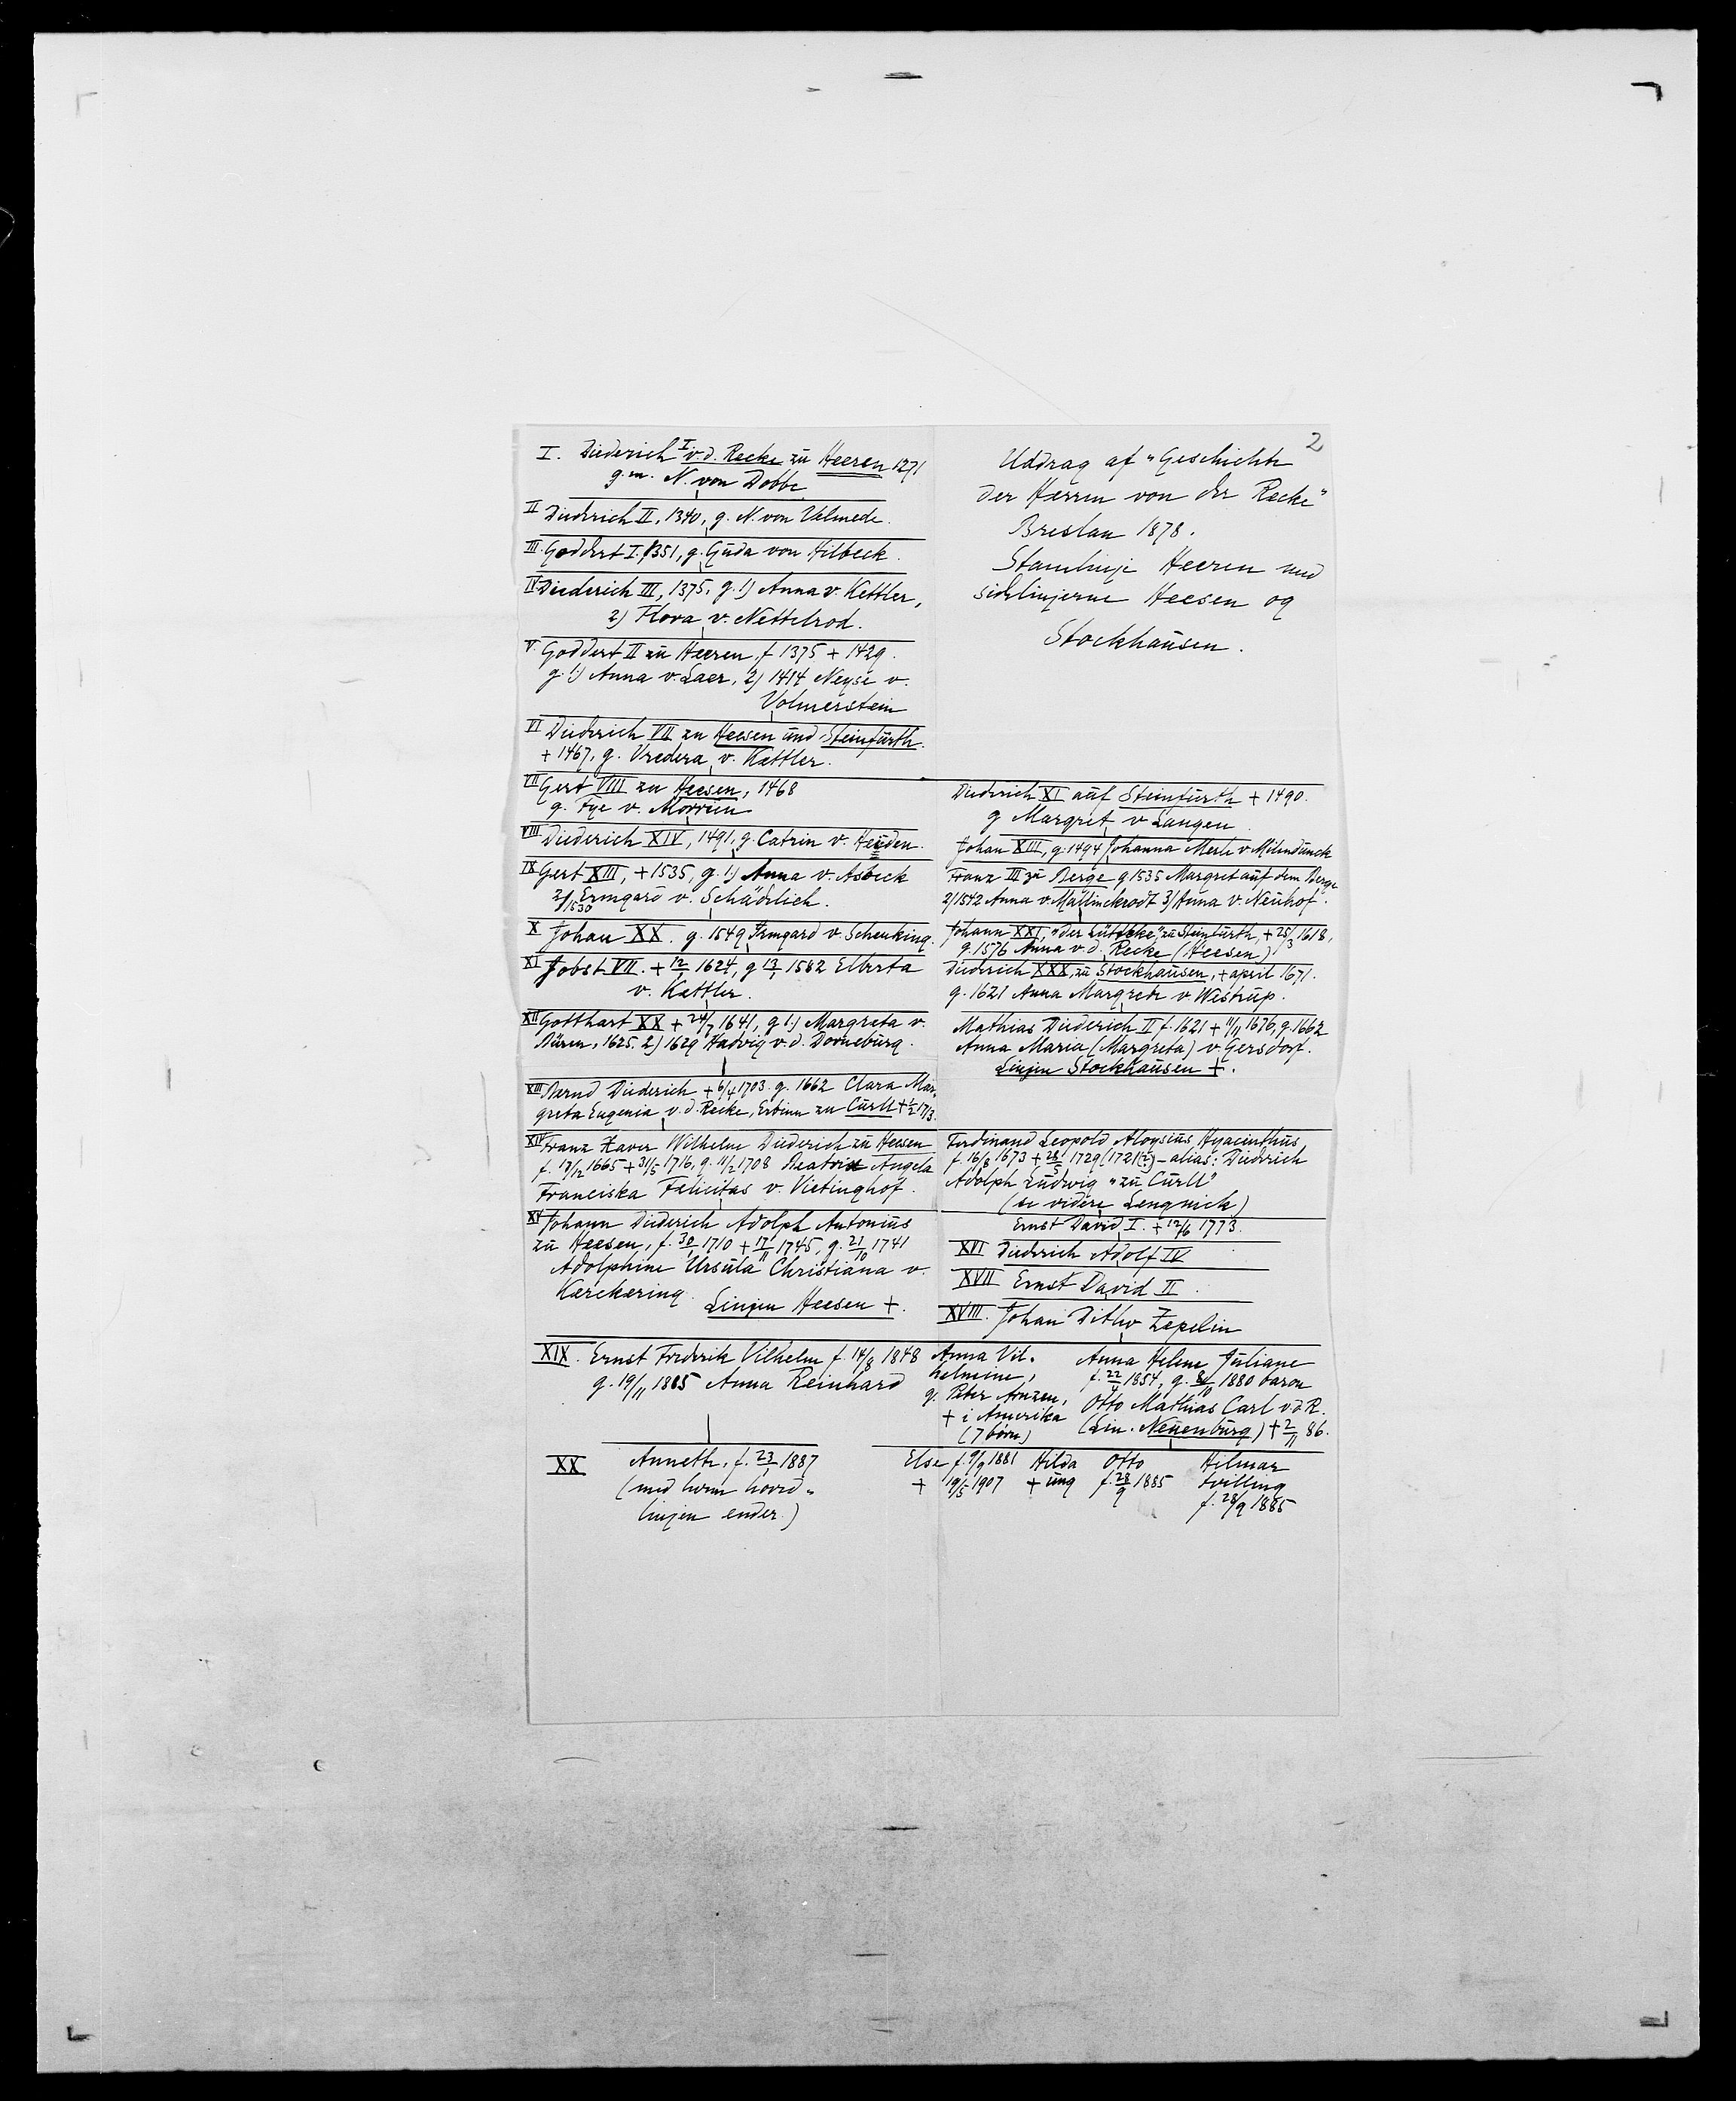 2
Uddrag af "Geschichte
der Herren von der Recke"
Breslau 1878.
Stamlinje Heeren med
sidelinjerne Heesen og
Stockhausen.
I. Diederich I v. d. Recke zu Heeren 1271
g. m. N. von Dobbe
II Diederich II, 1340, g. N. von Volmede.
III. Goddert I. 1351, g. Guda von Hilbeck.
IV Diederich III, 1375, g. 1) Anna v. Kettler,
2) Flora v. Nettelrod.
V. Goddert II zu Heeren f 1375 + 1429.
g. 1) Anna v. Laer, 2) 1414 Neyse v.
Volmerstein
VI Diederich VII zu Heesen und Steinfurth.
+ 1467, g. Vredera v. Kettler.
VII Gert VIII zu Heesen, 1468
g. Fye v. Morrien
VIII. Diederich XIV, 1491, g. Catrin v. Heiden.
IX Gert XIII, + 1535, g. 1) Anna v. Asbeck
2) 1530 Ermgard v. Schädelich.
X Johan XX. g. 1549 Irmgard v. Schenking.
XI Jobst VII. + 12/1 1624, g 13/1 1582 Elberta
v. Kettler.
XII Gotthart XX + 24/7 1641, g 1) Margreta v.
Büren, 1625. 2) 1629 Hadvig v. d. Dorneburg.
XIII Bernd Diederich + 6/4 1703. g. 1662 Clara Mar-
greta Eugenia v. d. Recke, Erbinn zu Curll + 1/2 1713.
XIV Franz Xaver Wilhelm Diederich zu Heesen
f. 17/12 1665 + 31/5 1716, g. 11/2 1708 Beatrix Angela
Franciska Felicitas v. Vietinghof.
XV Johann Diederich Adolph Antonius
zu Heesen, f. 30/1 1710 + 17/11 1745, g. 21/10 1741
Adolphine Ursula Christiana v.
Kerckering.
Linjen Heesen +.
Diederich XI auf Steinfurth + 1490.
g Margret v Langen
Johan XIII, g. 1494 Johanna Merle v Milendunck
Franz III zu Berge g 1535 Margret auf dem Berge
2) 1542 Anna v. Mallinckrodt 3) Anna v. Neuhof.
Johann XXI, "der Lüttcke" zu Steinfurth, + 25/3 1618,
g. 1576 Anna v. d. Recke (Heesen)
Diederich XXX, zu Stockhausen, + april 1671.
g. 1621 Anna Margrete v Westrup.
Mathias Diederich II f. 1621 + 11/11 1676, g. 1662
Anna Maria (Margreta) v. Gersdorf.
Linjen Stockhausen +.
Ferdinand Leopold Aloysius Hyacinthus
f. 16/8 1673 + 28/5 1729 (1721?) – alias: Diedrich
Adolph Ludwig "zu Curll"
(se videre Lengnich)
Ernst David I. + 12/6 1773.
XVI Diedrich Adolf IV
XVII Ernst David II.
XVIII. Johan Ditlev Zepelin
XIX. Ernst Frederik Vilhelm f. 14/8 1848
g. 19/11 1885 Anna Reinhard
Anna Vil-
helmine,
g. Peter Amzen,
+ i Amerika
(7 børn)
Anna Helene Juliane
f. 22/4 1854, g. 8/10 1880 baron
Otto Mathias Carl v. d R.
(Lin. Neuenburg) + 2/11 86.
XX Anneth, f. 23/1 1887
(med hvem hoved-
linjen ender.)
Else f. 9/9 1881
+ 19/5 1907
Hilda
+ ung
Otto
f. 28/9 1885
Hilmar
tvilling
f. 28/9 1885